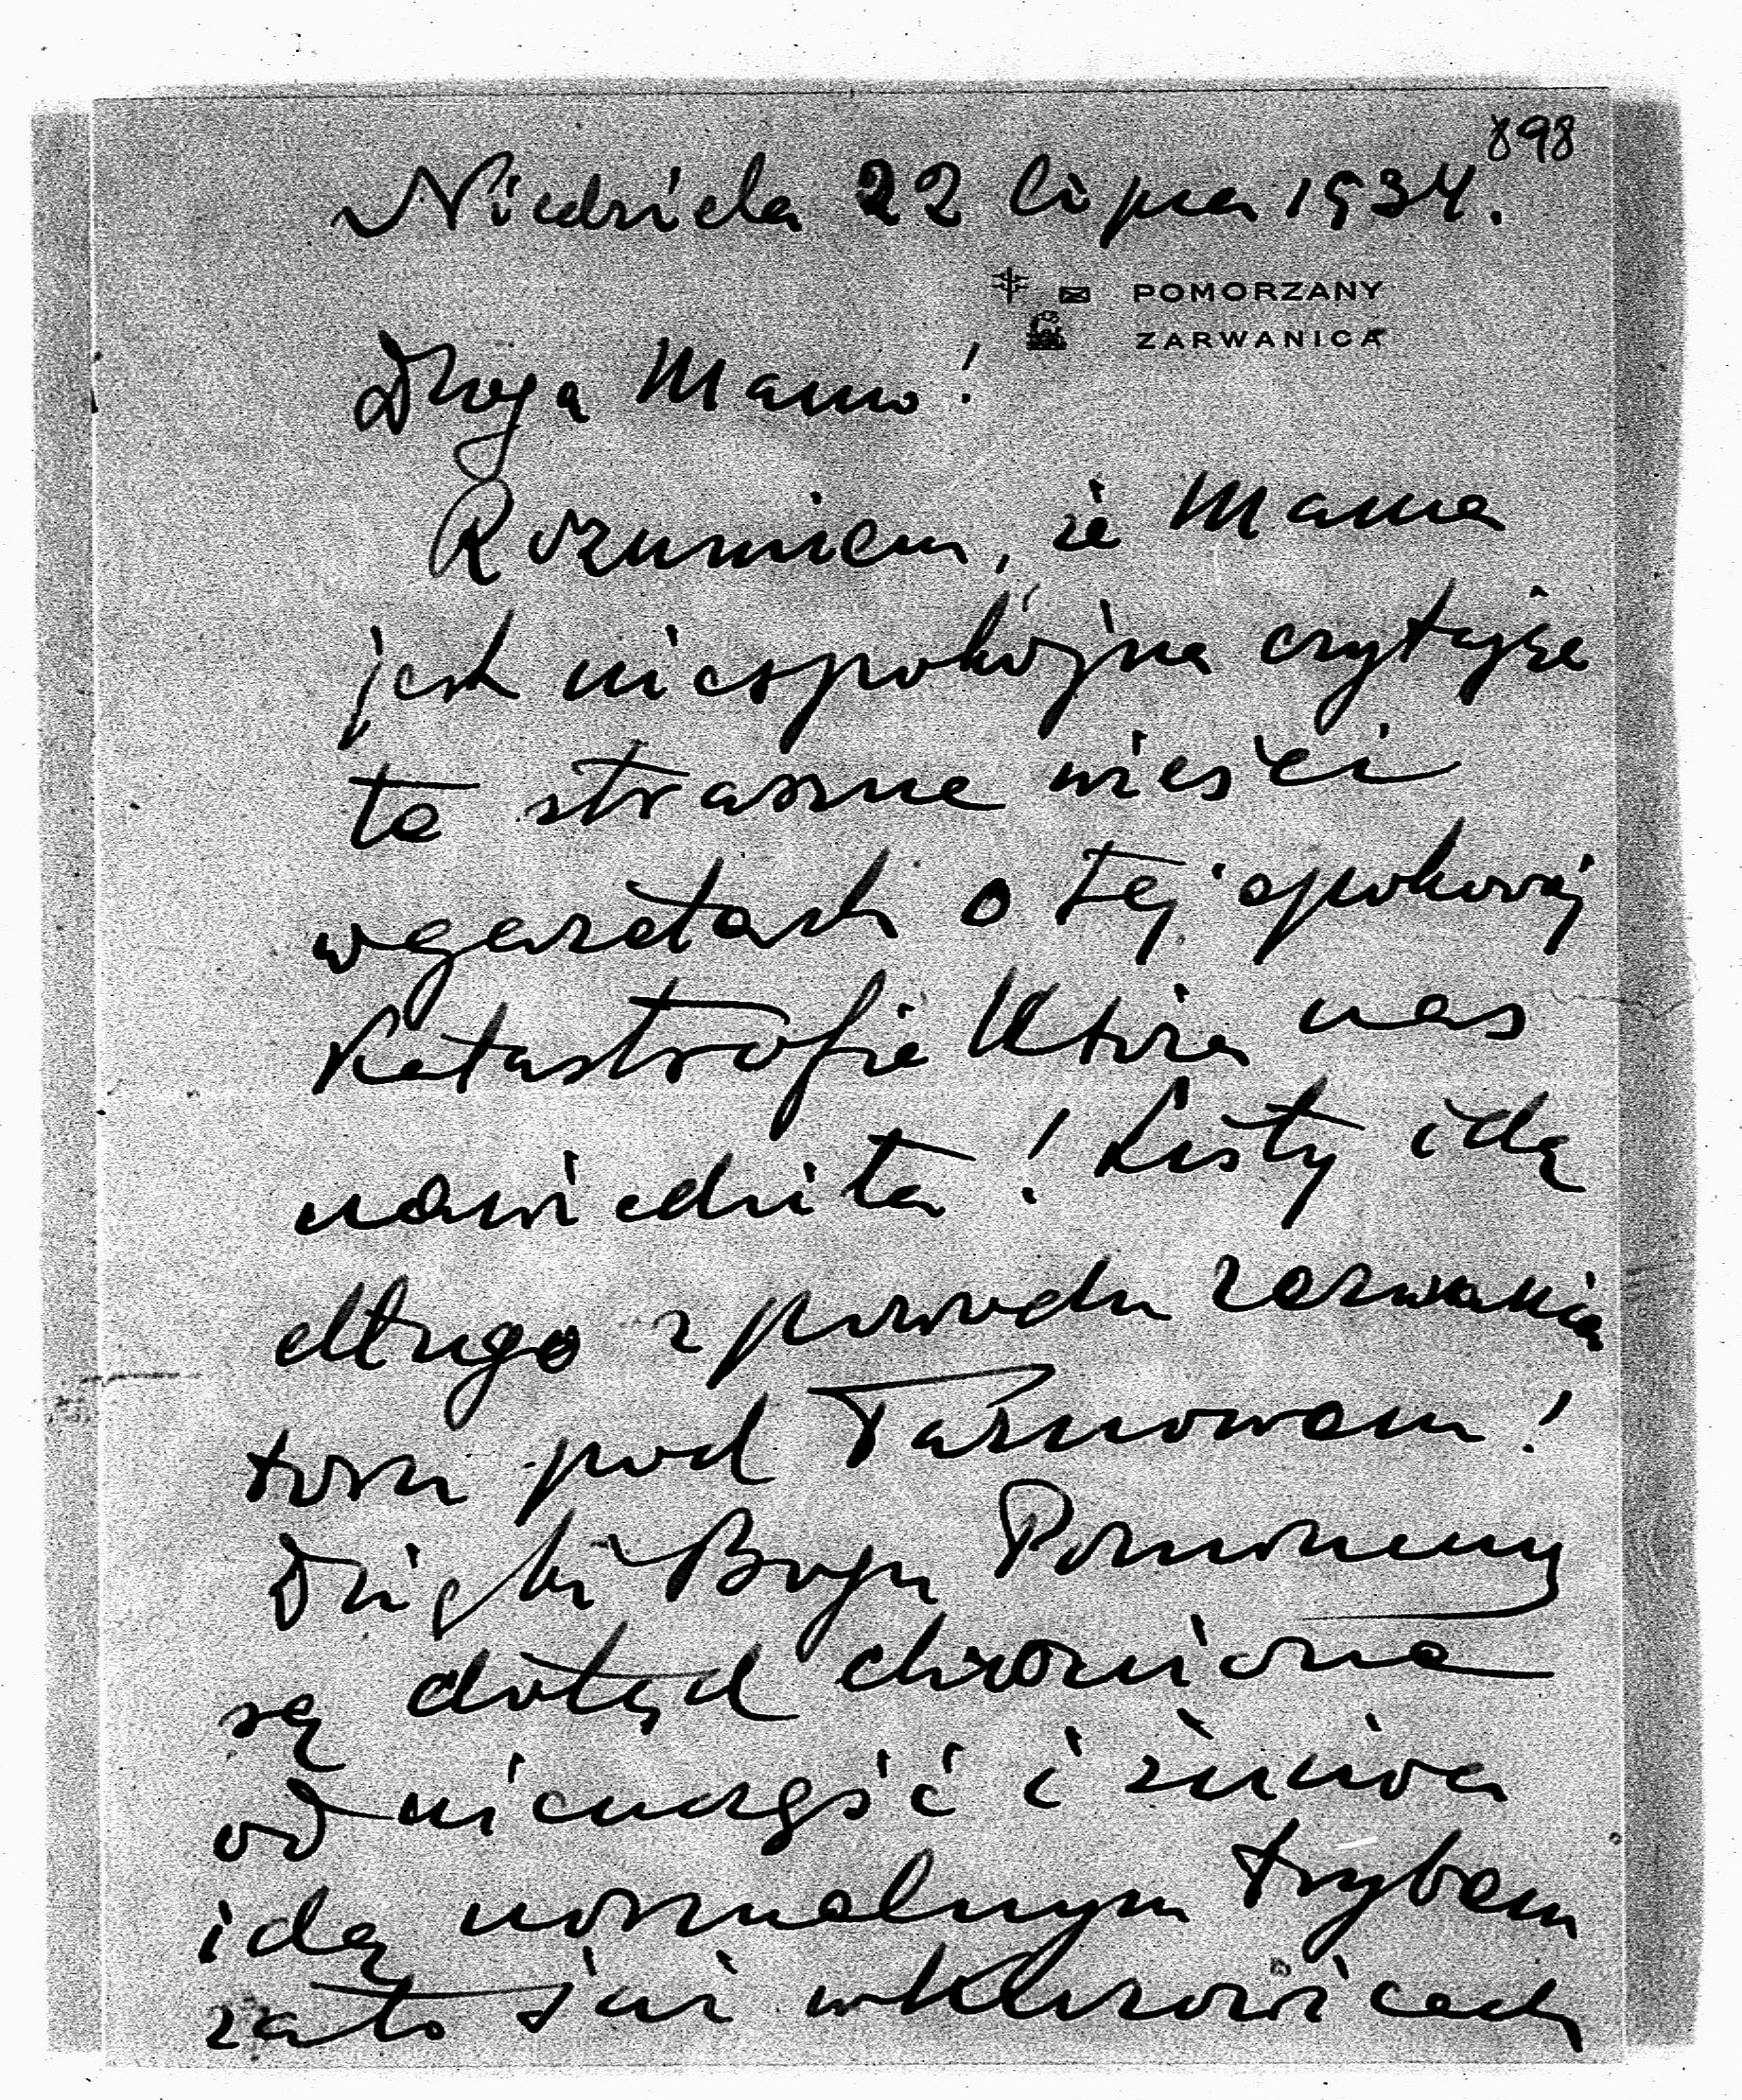 898
Niedziela 22 lipca 1934.
POMORZANY
ZARWANICA
Droga Mamo!
Rozumiem, że Mama
jest niespokojna czytając
te straszne wieści
w gazetach o tej epokowej
Katastrofie która nas
nawiedziła! Listy idą
długo z powodu zerwania
toru pod Tarnowem!
Dzięki Bogu Pomorzany
są dotąd chronione
od nieszczęść i żniwa
idą normalnym trybem
zato już w Kurowicach